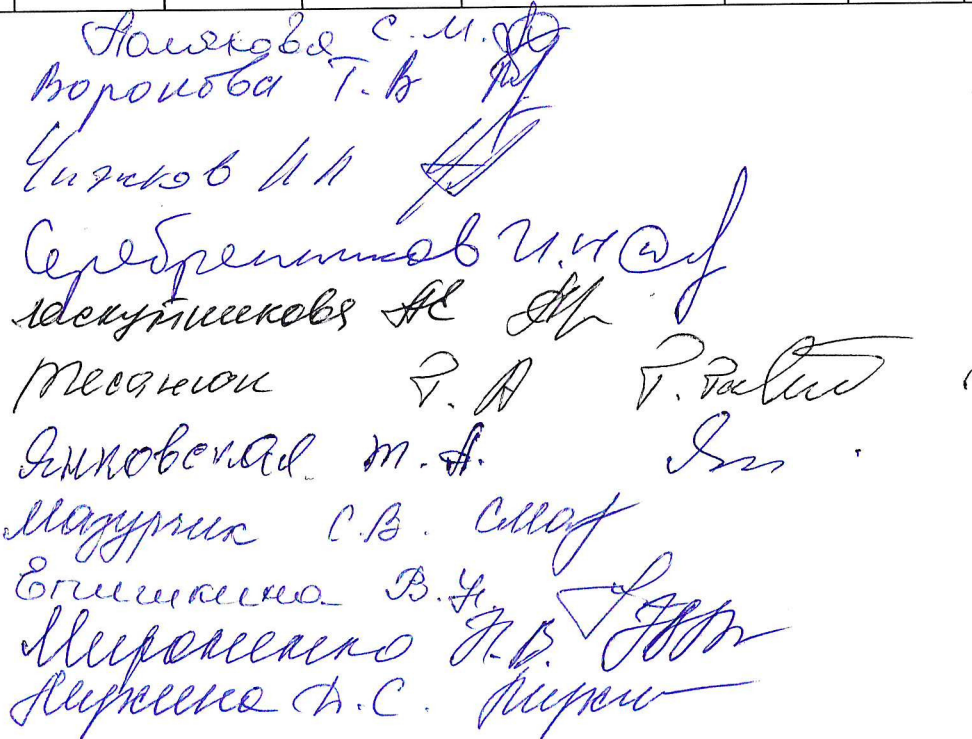 Полякова С.М.
Воронова Т.В
Чижков И А
Серебренников И.Н
Лоскутникова АЕ
Тесанюк Р.А
Янковская Т.А.
Мазурчик С.В.
Епишкина В.Н.
Мироненко Н.В.
Нужина Л.С.